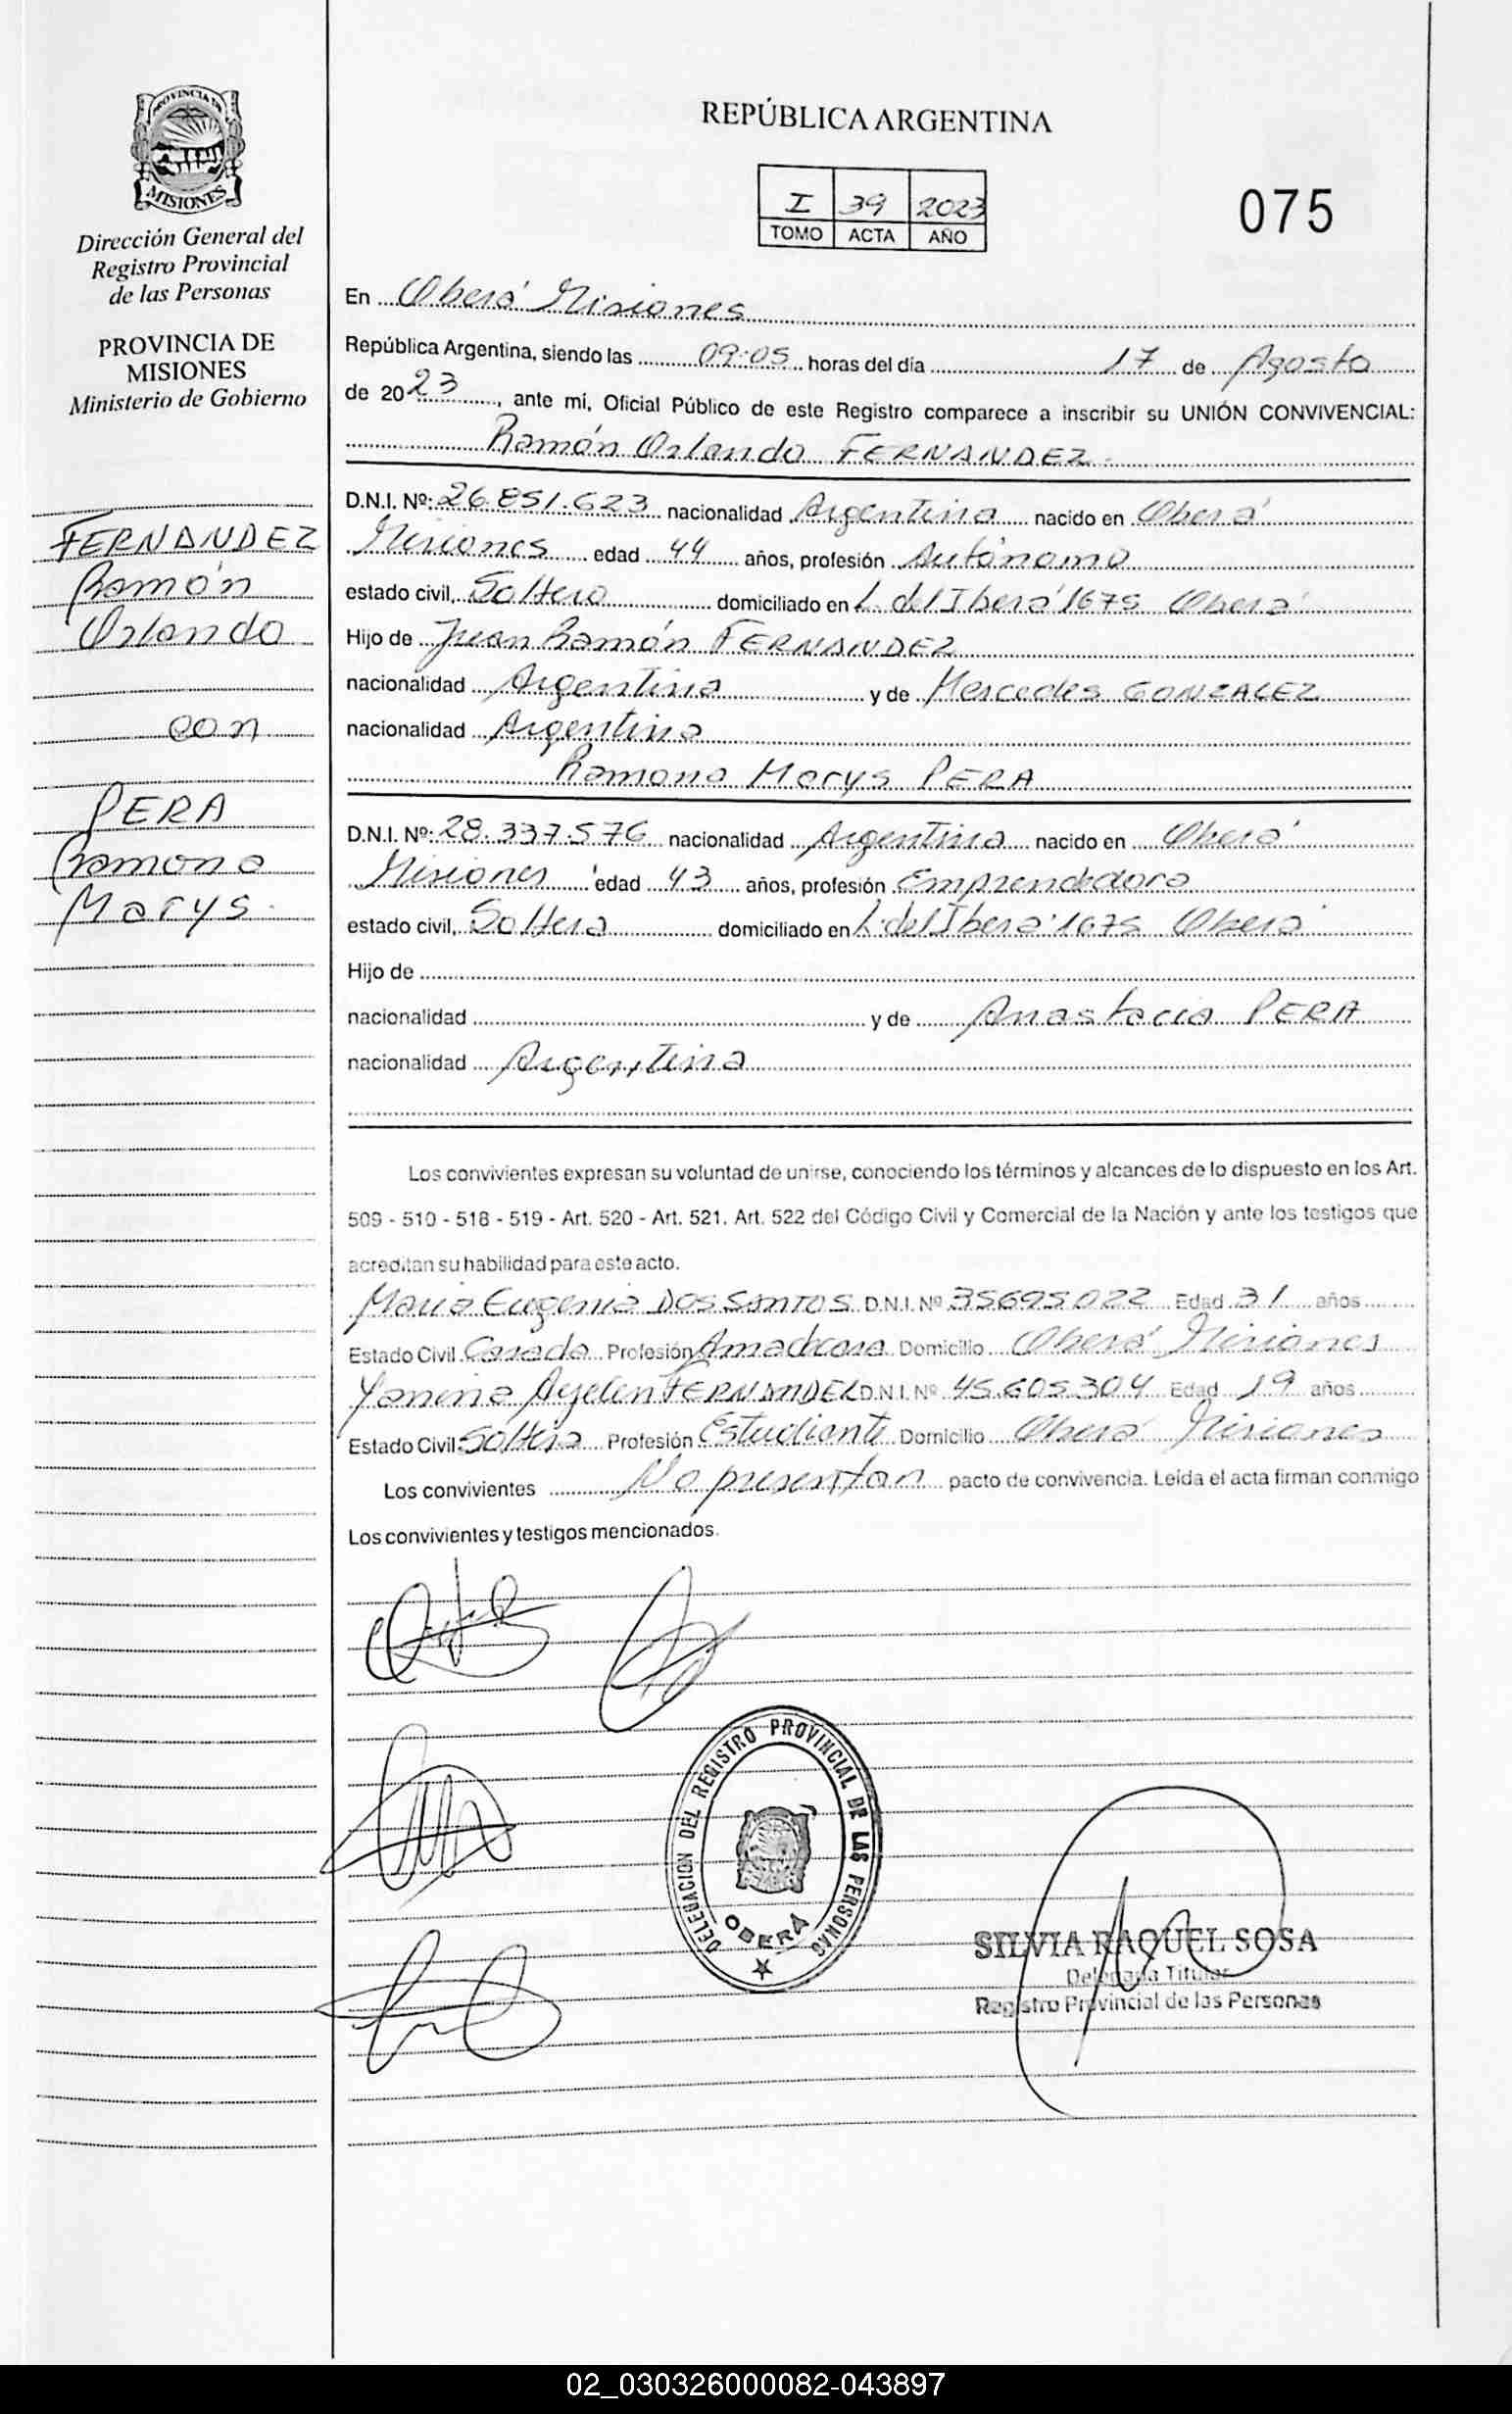 PROVINCIA DE
MISIONES
Dirección General del
Registro Provincial
de las Personas
PROVINCIA DE
MISIONES
Ministerio de Gobierno
FERNANDEZ
Ramón
Orlando
con
PERA
Ramona
Marys.
REPÚBLICA ARGENTINA
I 39 2023
TOMO ACTA AÑO
075
En Oberá Misiones
República Argentina, siendo las 09:05 horas del día 17 de Agosto
de 2023, ante mí, Oficial Público de este Registro comparece a inscribir su UNIÓN CONVIVENCIAL:
Ramón Orlando FERNANDEZ.
D.N.I. Nº: 26.851.623 nacionalidad Argentina nacido en Oberá
Misiones edad 44 años, profesión Autónomo
estado civil, Soltero domiciliado en L. del Iberá 1675 Oberá
Hijo de Juan Ramón FERNANDEZ
nacionalidad Argentina y de Mercedes GONZALEZ
nacionalidad Argentina
Ramona Marys PERA
D.N.I. Nº: 28.337.576 nacionalidad Argentina nacido en Oberá
Misiones edad 43 años, profesión Emprendedora
estado civil, Soltera domiciliado en L. del Iberá 1675 Oberá
Hijo de
nacionalidad y de Anastacia PERA
nacionalidad Argentina
Los convivientes expresan su voluntad de unirse, conociendo los términos y alcances de lo dispuesto en los Art.
509 - 510 - 518 - 519 - Art. 520 - Art. 521. Art. 522 del Código Civil y Comercial de la Nación y ante los testigos que
acreditan su habilidad para este acto.
Maria Eugenia DOS SANTOS D.N.I. Nº 35695022 Edad 31 años
Estado Civil Casada Profesión Ama de casa Domicilio Oberá Misiones
Yanina Ayelen FERNANDEZ D.N.I. Nº 45.605.304 Edad 19 años
Estado Civil Soltera Profesión Estudiante Domicilio Oberá Misiones
Los convivientes No presentan pacto de convivencia. Leída el acta firman conmigo
Los convivientes y testigos mencionados.
DELEGACION DEL REGISTRO PROVINCIAL DE LAS PERSONAS
OBERÁ
SILVIA RAQUEL SOSA
Delegada Titular
Registro Provincial de las Personas
02_030326000082-043897